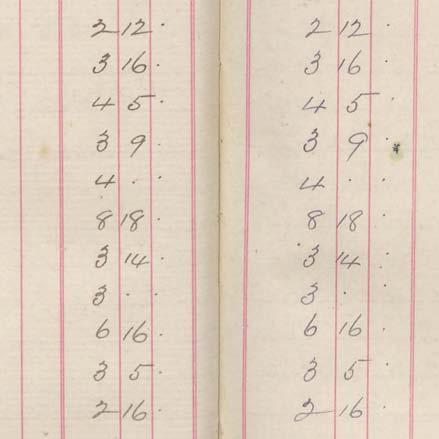 2 12 · 2 12 ·
3 16 · 3 16 ·
4 5 · 4 5 ·
3 9 · 3 9 ·
4 · · 4 · ·
8 18 · 8 18 ·
3 14 · 3 14 ·
3 · · 3 · ·
6 16 · 6 16 ·
3 5 · 3 5 ·
2 16 · 2 16 ·